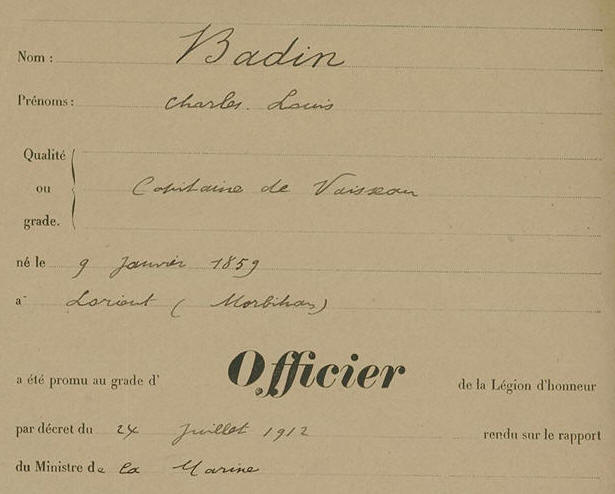 Nom : Badin
Prénoms : Charles. Louis
Qualité
ou Capitaine de Vaisseau
grade.
né le 9 Janvier 1859
a Lorient ( Morbihan)
a été promu au grade d' Officier de la Légion d'honneur
par décret du 24 Juillet 1912 rendu sur le rapport
du Ministre de la Marine